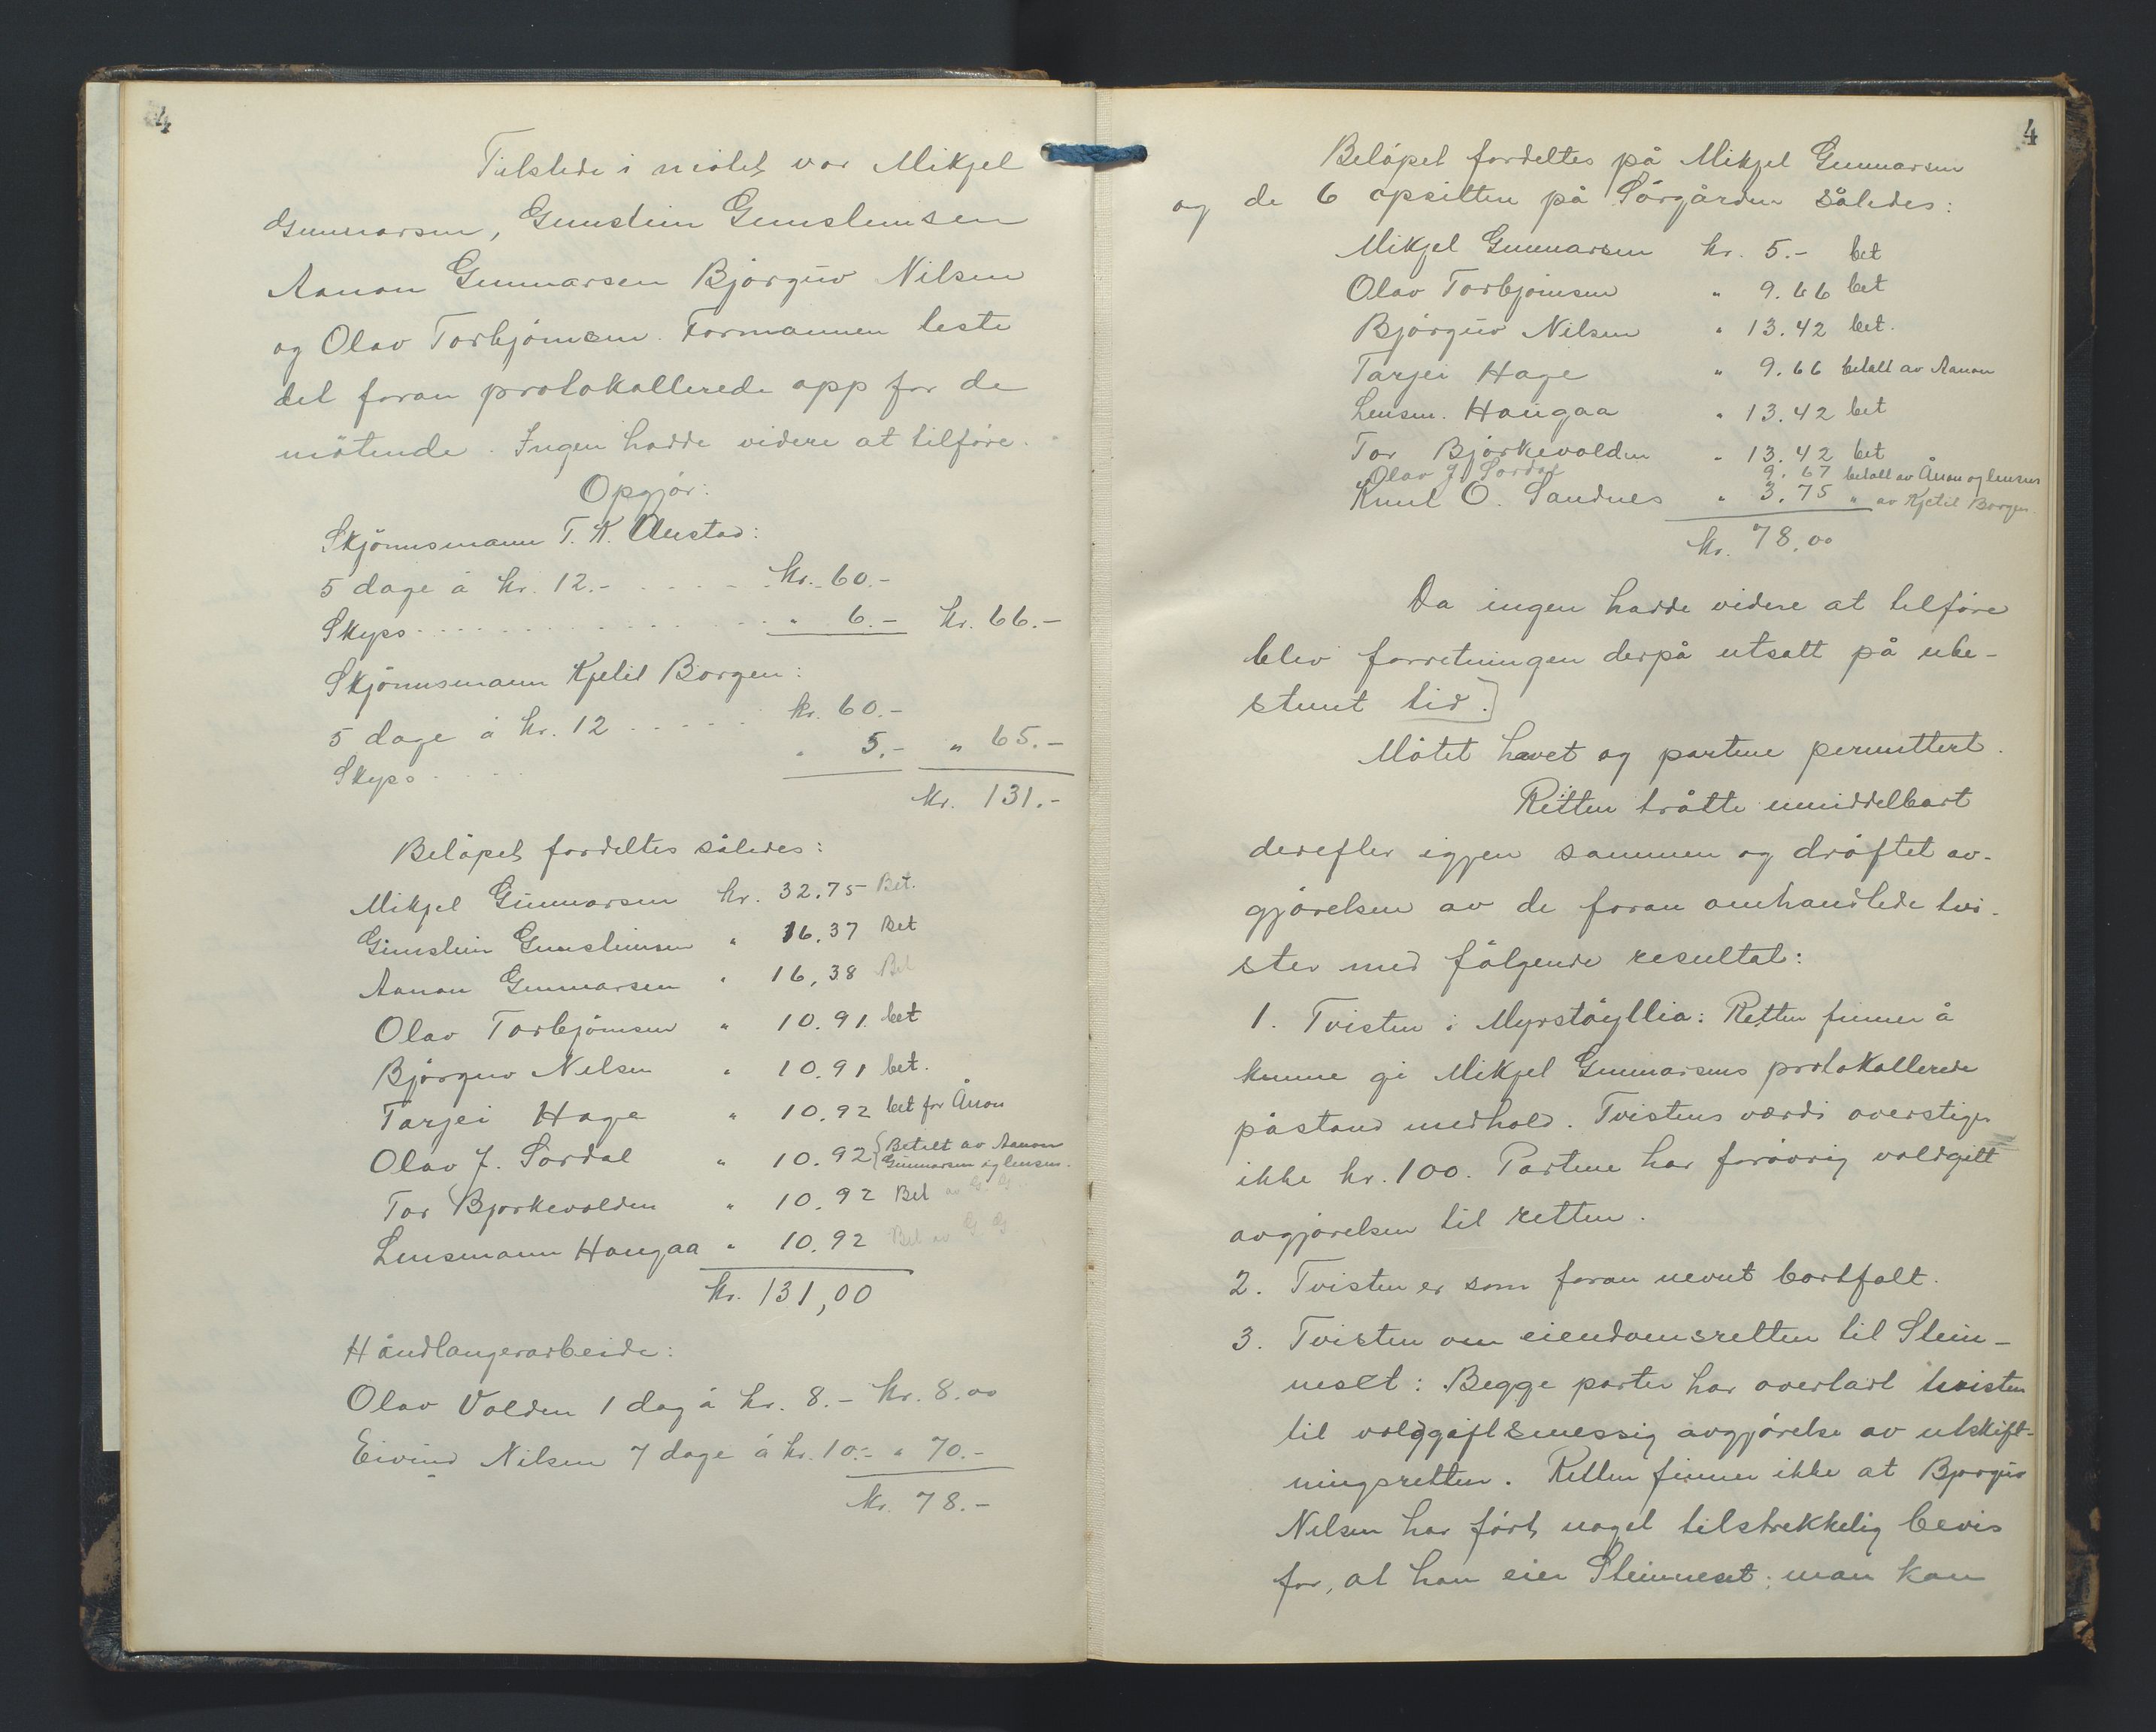 4
Tilstede i mötet var Mikjel
Gunnarsen, Gunstein Gunsteinsen
Aanon Gunnarsen Björguv Nilsen
og Olav Torbjörnsen. Formannen leste
det foran protokollerede opp for de
mötende. Ingen hadde videre at tilföre.
Opgjör:
Skjönnsmann T. K. Austad:
5 dage á kr. 12.- . . . . - kr. 60.-
Skyss . . . . . . . . . . " 6.- kr. 66.-
Skjönnsmann Kjetil Borgen:
5 dage á kr. 12 . . . . . kr. 60.-
Skyss . . . . " 5.- " 65.-
kr. 131.-
Belöpet fordeltes således:
Mikjel Gunnarsen kr. 32.75 Bet.
Gunstein Gunsteinsen " 16.37 Bet
Aanon Gunnarsen " 16,38 Bet
Olav Torbjörnsen " 10.91 bet
Björguv Nilsen " 10.91 bet.
Tarjei Hage " 10.92 bet for Ånon
Olav J. Sordal " 10.92 { Betalt av Aanon
Gunnarsen og lensm.
Tor Bjorkevolden " 10.92 Bet av G. G.
Lensmann Haugaa " 10.92 Bet av G G
kr. 131,00
Håndlangerarbeide:
Olav Volden 1 dag á kr. 8.- kr. 8.00
Eivind Nilsen 7 dage á kr. 10.- " 70.-
kr. 78.-
4
Belöpet fordeltes på Mikjel Gunnarsen
og de 6 opsitten på Sörgården således:
Mikjel Gunnarsen kr. 5.- bet
Olav Torbjörnsen " 9.66 bet
Björguv Nilsen " 13.42 bet.
Tarjei Hage " 9.66 betalt av Aanon
Lensm. Haugaa " 13.42 bet
Tor Björkevolden " 13.42 bet
Olav J Sordal 9.67 betalt av Ånon og lensm
Knut O. Sandnes " 3.75 " av Kjetil Borgen.
kr. 78.00
Da ingen hadde videre at tilföre
blev forretningen derpå utsatt på ube-
stemt tid.]
Mötet hevet og partene permittert.
Retten trådte umiddelbart
derefter igjen sammen og dröftet av-
gjörelsen av de foran omhandlede tvi-
ster med fölgende resultat:
1. Tvisten i Myrstöyllia: Retten finner å
kunne gi Mikjel Gunnarsens protokollerede
påstand medhold. Tvistens værdi overstiger
ikke kr. 100. Partene har forövrig voldgitt
avgjörelsen til retten.
2. Tvisten er som foran nevnt bortfalt.
3. Tvisten om eiendomsretten til Stein-
neset: Begge parter har overlatt tvisten
til voldgiftsmessig avgjörelse av utskift-
ningsretten. Retten finner ikke at Bjorguv
Nilsen har fört noget tilstrekkelig bevis
for, at han eier Steinneset; man kan